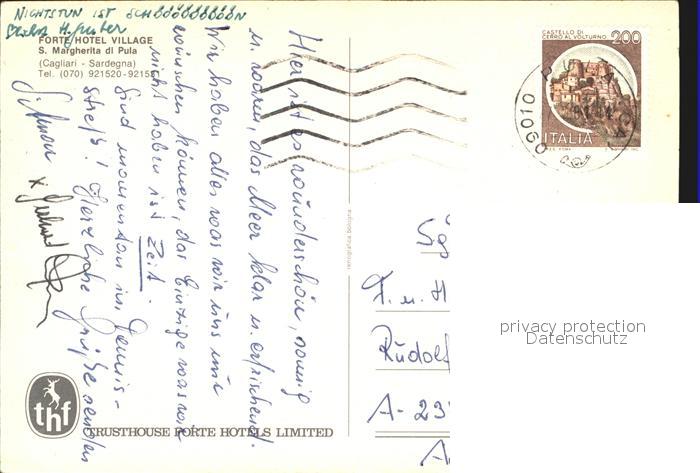 NICHTSTUN IST SCHÖÖÖÖÖÖÖÖÖN
FORTE HOTEL VILLAGE
S. Margherita di Pula
(Cagliari - Sardegna)
Tel. (070) 921520 - 92152
Hier ist es wunderschön, sonnig
u. warm, das Meer klar u. erfrischend.
Wir haben alles was wir uns nur
wünschen können, das Einzige was wir
nicht haben ist Zeit.
Sind momentan im Tennis-
streß! Herzliche Grüße senden
CASTELLO DI
CERRO AL VOLTURNO 200
ITALIA
09010 PULA CA
F. u. H
Rudolf
A-23
A
privacy protection
Datenschutz
thf
TRUSTHOUSE FORTE HOTELS LIMITED